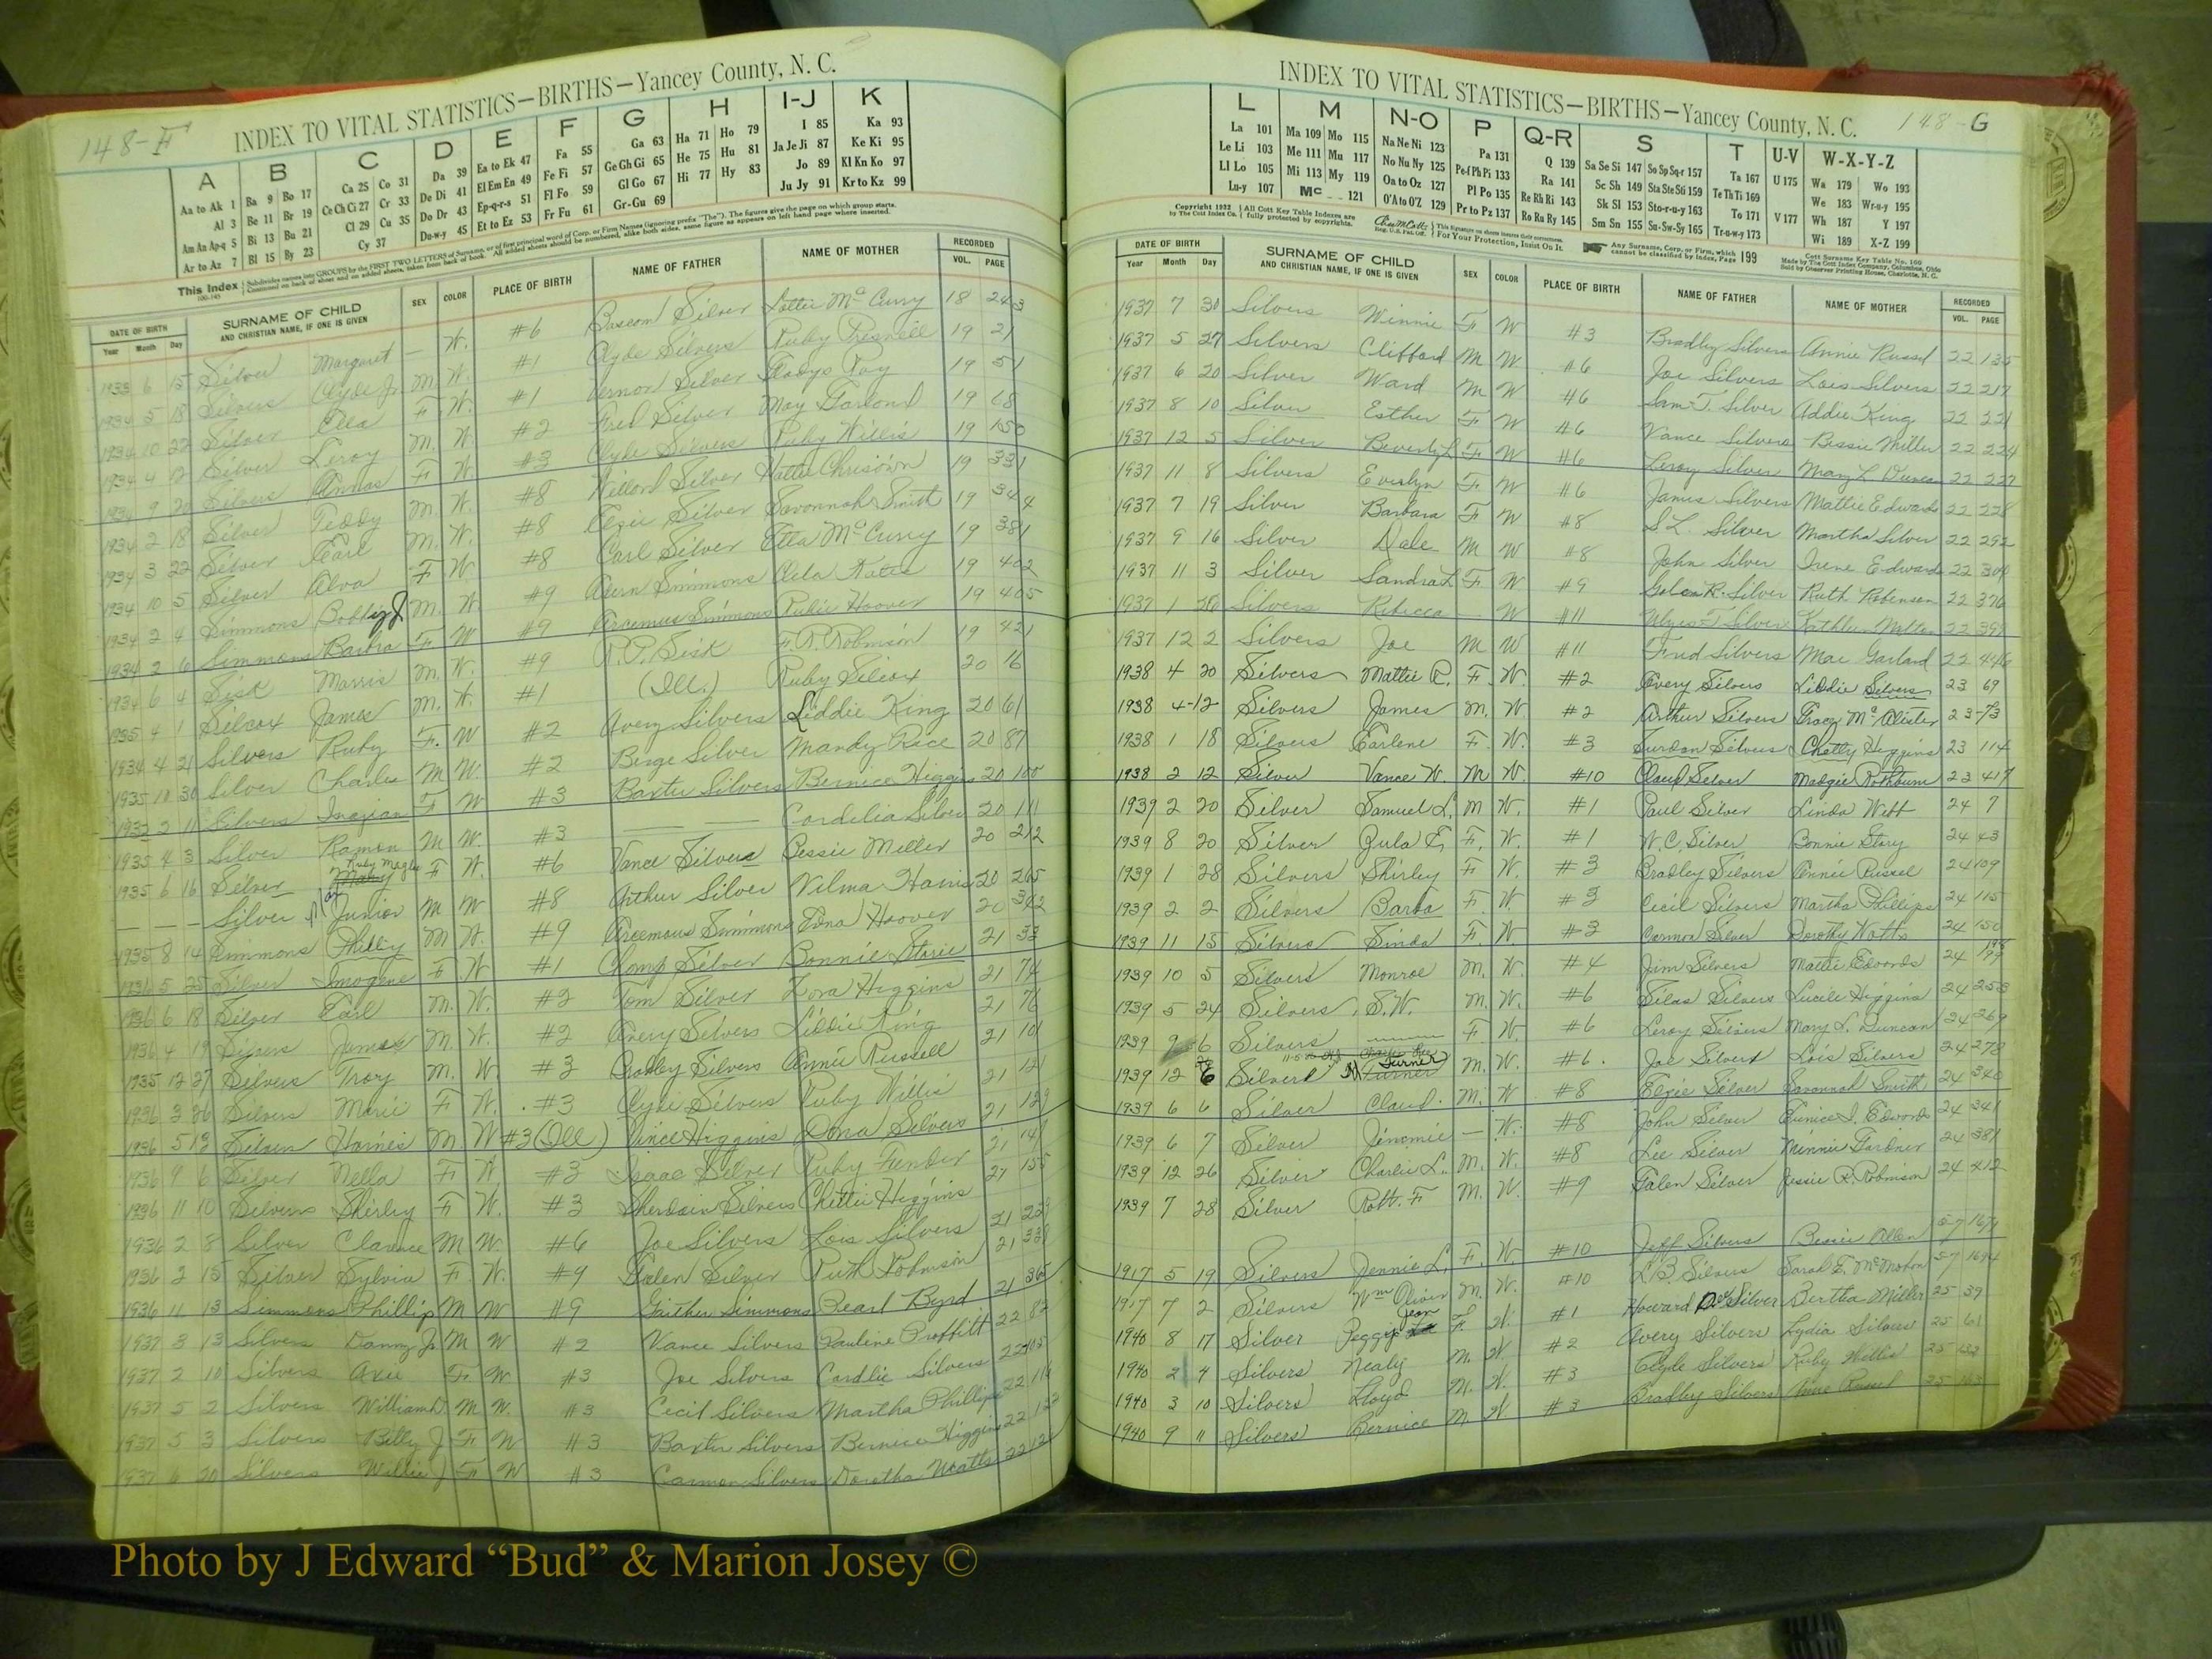 148-F
INDEX TO VITAL STATISTICS—BIRTHS—Yancey County, N. C.
A B C D E F G H I-J K
Aa to Ak 1 Ba 9 Bo 17 Ca 25 Co 31 Da 39 Ea to Ek 47 Fa 55 Ga 63 Ha 71 Ho 79 I 85 Ka 93
Al 3 Be 11 Br 19 Ce Ch Ci 27 Cr 33 De Di 41 El Em En 49 Fe Fi 57 Ge Gh Gi 65 He 75 Hu 81 Ja Je Ji 87 Ke Ki 95
Am An Ap-q 5 Bi 13 Bu 21 Cl 29 Cu 35 Do Dr 43 Ep-q-r-s 51 Fl Fo 59 Gl Go 67 Hi 77 Hy 83 Jo 89 Kl Kn Ko 97
Ar to Az 7 Bl 15 By 23 Cy 37 Du-w-y 45 Et to Ez 53 Fr Fu 61 Gr-Gu 69 Ju Jy 91 Kr to Kz 99
This Index
DATE OF BIRTH SURNAME OF CHILD SEX COLOR PLACE OF BIRTH NAME OF FATHER NAME OF MOTHER RECORDED
Year Month Day AND CHRISTIAN NAME, IF ONE IS GIVEN VOL. PAGE
1933 6 15 Silver Margaret — W. #6 Bascom Silver Lottie McCurry 18 243
1934 5 18 Silvers Clyde Jr M W. #1 Clyde Silvers Ruby Presnell 19 21
1934 10 22 Silver Ella F W. #1 Vernon Silver Gladys Ray 19 51
1934 4 12 Silver Leroy M. W. #2 Fred Silver May Garland 19 68
1934 9 20 Silvers Annas F W. #3 Clyde Silvers Ruby Willis 19 150
1934 2 18 Silver Teddy M. W. #8 Willard Silver Hattie 19 331
1934 3 22 Silver Earl M. W. #8 Elzie Silver Savannah Smith 19 344
1934 10 5 Silver Alva F W. #8 Carl Silver Etta McCurry 19 381
1934 2 4 Simmons Bobby J M. W. #9 Simmons 19 402
1934 2 6 Simmons Barbra F W #9 Arcemus Simmons Hoover 19 405
1934 6 4 Sisk Morris M. W. #9 R.P. Sisk F.R. Robinson 19 421
1935 4 1 Silcox James M. W. #1 (Ill.) Ruby Silcox 20 16
1934 4 21 Silvers Ruby F. W #2 Avery Silvers Liddie King 20 61
1935 11 30 Silver Charles M W. #2 Birge Silver Mandy Race 20 87
Silvers F W #3 Baxter Silvers Bernice Higgins 20 100
1935 4 3 Silver Ramon M W. #3 — — Cordelia Silver 20 111
1935 6 16 Silver Ruby F W. #6 Vance Silvers Bessie Miller 20 212
— — — Silver Junior M W #8 Arthur Silver Vilma Hanis 20 265
1935 8 14 Simmons Philly M W. #9 Arcemous Simmons Edna Hoover 20 342
1936 5 25 Silver Imogene F W #1 Chomp Silver Bonnie Storie 21 33
1936 6 18 Silver Earl M. W. #2 Tom Silver Zora Higgins 21 74
1936 4 19 Silvers James M. W. #2 Avery Silvers Liddie King 21 76
1935 12 27 Silvers Troy M. W #3 Bradley Silvers Annie Russell 21 101
1936 3 26 Silvers Marie F W. #3 Clyde Silvers Ruby Willis 21 121
1936 5 13 Silvers M W #3 (Ill.) Vince Higgins Dona Silvers 21 129
1936 9 6 Silver Nella F W #3 Isaac Silver Ruby Fender 21 147
1936 11 10 Silvers Shirley F W. #3 Silvers Chettie Higgins 21 155
1936 2 8 Silver Clarence M W. #6 Joe Silvers Lois Silvers 21 229
1936 2 15 Silver Sylvia F W. #9 Galen Silver Ruth Robinson 21 338
1936 11 13 Simmons Phillip M W #9 Gaither Simmons Pearl Byrd 21 365
1937 3 13 Silvers Danny J. M W #2 Vance Silvers Pauline Proffitt 22 82
1937 2 10 Silvers F W #3 Joe Silvers Cordlie Silvers 22 105
1937 5 2 Silvers William D M W. #3 Cecil Silvers Martha Phillips 22 116
1937 5 3 Silvers Billy J F W #3 Baxter Silvers Bernice Higgins 22 122
1937 6 20 Silvers Willie J F W #3 Carmon Silvers Doretha Watts 22
148-G
INDEX TO VITAL STATISTICS—BIRTHS—Yancey County, N. C.
L M N-O P Q-R S T U-V W-X-Y-Z
La 101 Ma 109 Mo 115 Na Ne Ni 123 Pa 131 Q 139 Sa Se Si 147 So Sp Sq-r 157 Ta 167 U 175 Wa 179 Wo 193
Le Li 103 Me 111 Mu 117 No Nu Ny 125 Pe-f Ph Pi 133 Ra 141 Sc Sh 149 Sta Ste Sti 159 Te Th Ti 169 We 183 Wr-u-y 195
Ll Lo 105 Mi 113 My 119 Oa to Oz 127 Pl Po 135 Re Rh Ri 143 Sk Sl 153 Sto-r-u-y 163 To 171 V 177 Wh 187 Y 197
Lu-y 107 Mc 121 O'A to O'Z 129 Pr to Pz 137 Ro Ru Ry 145 Sm Sn 155 Su-Sw-Sy 165 Tr-u-w-y 173 Wi 189 X-Z 199
Copyright 1932 by The Cott Index Co. All Cott Key Table Indexes are fully protected by copyrights. This signature on sheets insures their correctness. For Your Protection, Insist On It. Any Surname, Corp. or Firm, which cannot be classified by Index, Page 199
Cott Surname Key Table No. 100
Made by The Cott Index Company, Columbus, Ohio
Sold by Observer Printing House, Charlotte, N. C.
DATE OF BIRTH SURNAME OF CHILD SEX COLOR PLACE OF BIRTH NAME OF FATHER NAME OF MOTHER RECORDED
Year Month Day AND CHRISTIAN NAME, IF ONE IS GIVEN VOL. PAGE
1937 7 30 Silvers Winnie F W #3 Bradley Silvers Annie Russel 22 135
1937 5 27 Silvers Clifford M W #6 Joe Silvers Lois Silvers 22 217
1937 6 20 Silver Ward M W #6 Sam T. Silver Addie King 22 221
1937 8 10 Silver Esther F W #6 Vance Silvers Bessie Miller 22 224
1937 12 5 Silver Beverly L F W #6 Leroy Silver Mary L Duncan 22 227
1937 11 8 Silvers Evelyn F W #6 James Silvers Mattie Edwards 22 228
1937 7 19 Silver Barbara F W #8 S.L. Silver Martha Silver 22 292
1937 9 16 Silver Dale M W #8 John Silver Irene Edwards 22 309
1937 11 3 Silver Sandra L F W #9 Galen R. Silver Ruth Robinson 22 376
1937 1 Silvers Rebecca — W #11 Silver Kathleen 22 399
1937 12 2 Silvers Joe M W #11 Fred Silvers Mae Garland 22 446
1938 4 20 Silvers Mattie R. F. W. #2 Every Silvers Liddie Silvers 23 69
1938 4-12 Silvers James M. W. #2 Arthur Silvers Tracy McAlister 23-73
1938 1 18 Silvers Earlene F. W. #3 Surdon Silvers Chetty Higgins 23 114
1938 2 12 Silver Vance W. M W. #10 Claud Silver Madgie Rathburn 23 417
1939 2 20 Silver Samuel L. M W. #1 Paul Silver Linda Witt 24 7
1939 8 20 Silver Zula E. F. W. #1 W.C. Silver Bonnie Story 24 43
1939 1 28 Silvers Shirley F W. #3 Bradley Silvers Annie Russel 24 109
1939 2 2 Silvers Barba F. W. #3 Cecil Silvers Martha Phillips 24 115
1939 11 15 Silvers Linda F. W. #3 Carmon Silver Dorothy Watts 24 150
1939 10 5 Silvers Monroe M. W. #4 Jim Silvers Mattie Edwards 24
1939 5 24 Silvers S.W. M. W. #6 Silas Silvers Lucile Higgins 24 253
1939 9 6 Silvers F W. #6 Leroy Silvers Mary L. Duncan 24 269
1939 12 6 Silvers Turner M. W. #6. Joe Silvers Lois Silvers 24 278
1939 6 6 Silver Claud. M. W #8 Elzie Silver Savannah Smith 24 340
1939 6 7 Silver Jimmie — W. #8 John Silver Eunice I. Edwards 24 341
1939 12 26 Silver Charlie L. M. W. #8 Lee Silver Minnie Gardner 24 381
1939 7 28 Silver Robt. F M. W. #9 Galen Silver Jessie R. Robinson 24 412
1917 5 19 Silvers Jennie L. F. W. #10 Jeff Silvers Bessie Allen 57
1917 7 2 Silvers Wm Oliver M. W. #10 L.B. Silvers Sarah E. McMahan 57 1694
1940 8 17 Silver Peggy Jean F. W. #1 Howard Silver Bertha Miller 25 39
1940 2 4 Silvers Nealy M. W #2 Avery Silvers Lydia Silvers 25 61
1940 3 10 Silvers Lloyd M. W. #3 Clyde Silvers Ruby Willis 25
1940 9 11 Silvers Bernice M W #3 Bradley Silvers Anne Russel 25
Photo by J Edward “Bud” & Marion Josey ©